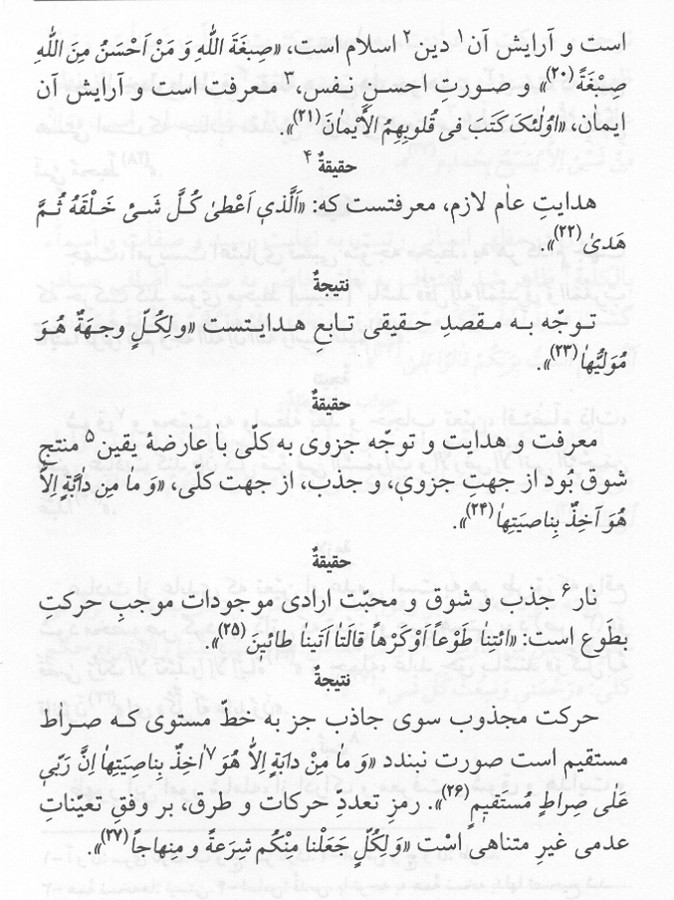 است و آرایش آن۱ دین۲ اسلام است، «صِبغَةَ اللّٰهِ وَ مَنْ اَحْسَنُ مِنَ اللّٰهِ
صِبْغَةً(۲۰)» و صورتِ احسنِ نفس،۳ معرفت است و آرایش آن
ایمان، «اوُلٰئکَ کَتَبَ فی قلوبِهِمُ الأیمانَ(۲۱)».
حقیقةٌ۴
هدایتِ عام لازم، معرفتست که: «اَلَّذی اَعْطیٰ کُلَّ شَیْ خَلْقَهُ ثُمَّ
هَدیٰ(۲۲)».
نتیجةٌ
توجّه به مقصدِ حقیقی تابعِ هدایتست «ولکُلٍّ وِجهَةٌ هُوَ
مُوَلیّٰهٰا(۲۳)».
حقیقةٌ
معرفت و هدایت و توجّه جزوی به کلّی با عارضهٔ یقین۵ منتج
شوق بُود از جهتِ جزوی، و جذب، از جهت کلّی، «وَ مٰا مِن دابَّةٍ اِلاّٰ
هُوَ آخِذٌ بِناصیَتِهٰا(۲۴)».
حقیقةٌ
نار۶ جذب و شوق و محبّت ارادی موجودات موجبِ حرکت
بطَوع است: «ائتِیٰا طَوْعاً اَوْکَرْهاً قالَتٰا اَتَینٰا طائِعینَ(۲۵)».
نتیجةٌ
حرکت مجذوب سوی جاذب جز به خطّ مستوی که صراط
مستقیم است صورت نبندد «وَ مٰا مِنْ دابَةٍ اِلاّٰ هُوَ۷ اخِذٌ بِناصِیَتِهٰا اِنَّ رَبّی
عَلٰی صِراطٍ مُستَقیمٍ(۲۶)». رمزِ تعددِ حرکات و طرق، بر وفقِ تعیّناتِ
عدمی غیرِ متناهی است «وَلِکُلٍّ جَعَلْنا مِنْکُم شِرعَةً و مِنهاجاً(۲۷)».